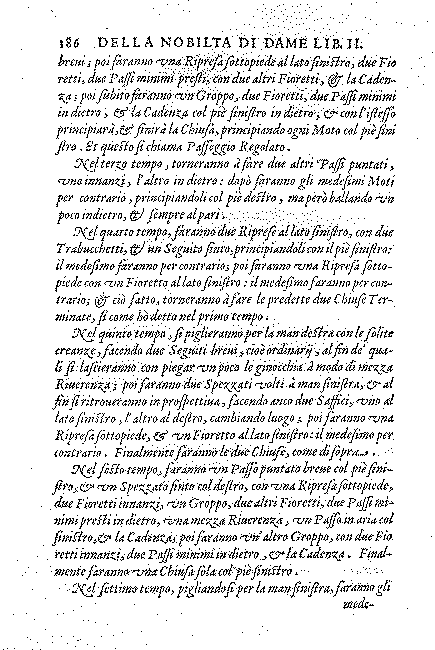 186 DELLA NOBILTA DI DAME LIB. II.
breui; poi faranno vna Ripresa sottopiede al lato sinistro, due Fio
retti, due Passi minimi presti, con due altri Fioretti, & la Caden-
za; poi subito faranno vn Groppo, due Fioretti, due Passi minimi
in dietro, & la Cadenza col piè sinistro in dietro; & con l'istesso
principiarà, & finirà la Chiusa, principiando ogni Moto col piè sini
stro. Et questo si chiama Passeggio Regolato.
Nel terzo tempo, torneranno à fare due altri Passi puntati,
vno innanzi, l'altro in dietro: dopò faranno gli medesimi Moti
per contrario, principiandoli col piè destro, ma però ballando vn
poco indietro, & sempre al pari.
Nel quarto tempo, faranno due Riprese al lato sinistro, con due
Trabucchetti, & un Seguito finto, principiandoli con il piè sinistro:
il medesimo faranno per contrario; poi faranno vna Ripresa sotto-
piede con vn Fioretto al lato sinistro: il medesimo faranno per con-
trario; & ciò fatto, torneranno à fare le predette due Chiuse Ter-
minate, si come hò detto nel primo tempo.
Nel quinto tempo, si piglieranno per la man destra con le solite
creanze, facendo due Seguiti breui, cioè ordinarij, al fin de' qua-
li si lascieranno con piegar vn poco le ginocchia à modo di mezza
Riuerenza; poi faranno due Spezzati volti à man sinistra, & al
fin si ritroueranno in prospettiua, facendo anco due Saffici, vno al
lato sinistro, l'altro al destro, cambiando luogo; poi faranno vna
Ripresa sottopiede, & vn Fioretto al lato sinistro: il medesimo per
contrario. Finalmente faranno le due Chiuse, come di sopra.
Nel sesto tempo, faranno vn Passo puntato breue col piè sini-
stro, & vn Spezzato finto col destro, con vna Ripresa sottopiede,
due Fioretti innanzi, vn Groppo, due altri Fioretti, due Passi mi-
nimi presti in dietro, vna mezza Riuerenza, vn Passo in aria col
sinistro, & la Cadenza; poi faranno vn'altro Groppo, con due Fio
retti innanzi, due Passi minimi in dietro, & la Cadenza. Final-
mente faranno vna Chiusa sola col piè sinistro.
Nel settimo tempo, pigliandosi per la man sinistra, faranno gli
mede-